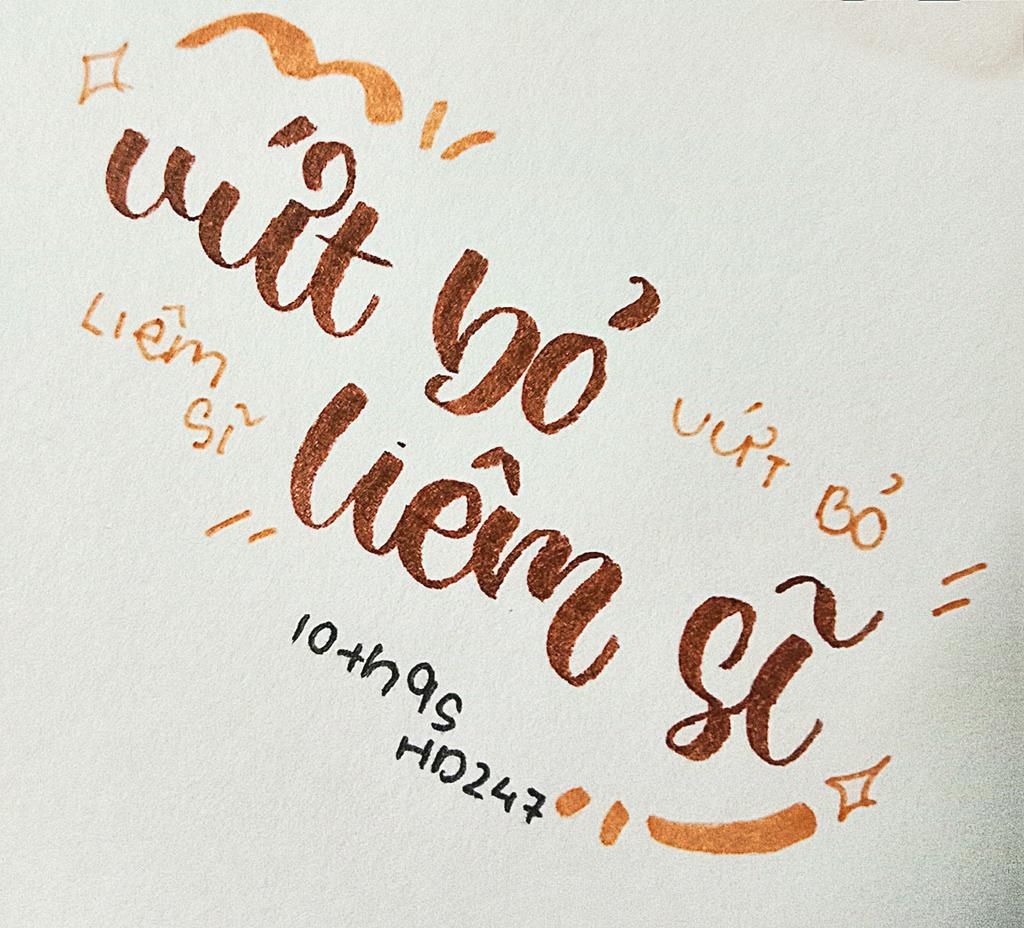 vứt bỏ
LIÊM
SĨ
VỨT BỎ
liêm sĩ
10th9s
HD247